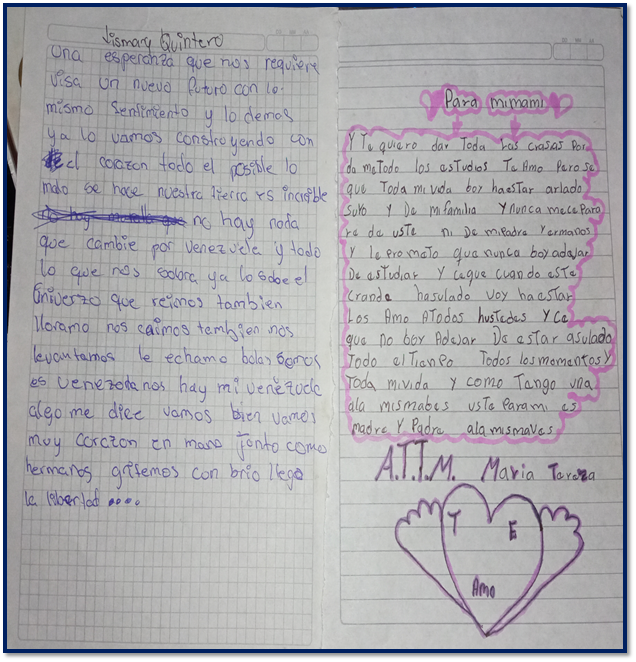 Jismary Quintero
Una esperanza que nos requiere
visa un nuevo futuro con lo
mismo sentimiento y lo demos
ya lo vamos construyendo con
el corazon todo el posible lo
malo se hace nuestra tierra es increible
no hay nada
que cambie por venezuela y todo
lo que nos sobra ya lo sabe el
Univerzo que reimos tambien
lloramo nos caimos tembien nos
levantamos le echamo bolas somos
es venezolanos hay mi venezuela
algo me dice vamos bien vamos
muy corazon en mano junto como
hermanos gritemos con brio llego
la libertad ....
Para mimami
Y Te quiero dar Toda las crasas Por
da meTodo los esTudios Te Amo Pero se
que Toda mi vida boy haestar arlado
suyo Y De mi familia Y nunca me ce Para
re de usTe ni De mi Padre Yermanos
Y le Promato que nunca boy adejar
De asTudiar Y ce que cuando esTe
Grande hasulado voy ha estar
Los Amo ATodos husTedes Y ce
que no boy Adejar De asTar asulado
Todo el Tianpo Todos los momentos Y
Toda mi vida Y como Tango una
ala mismabes usTe Para mi es
madre Y Padre ala mismaves
A.T.T.M. Maria Tereza
T E
Amo